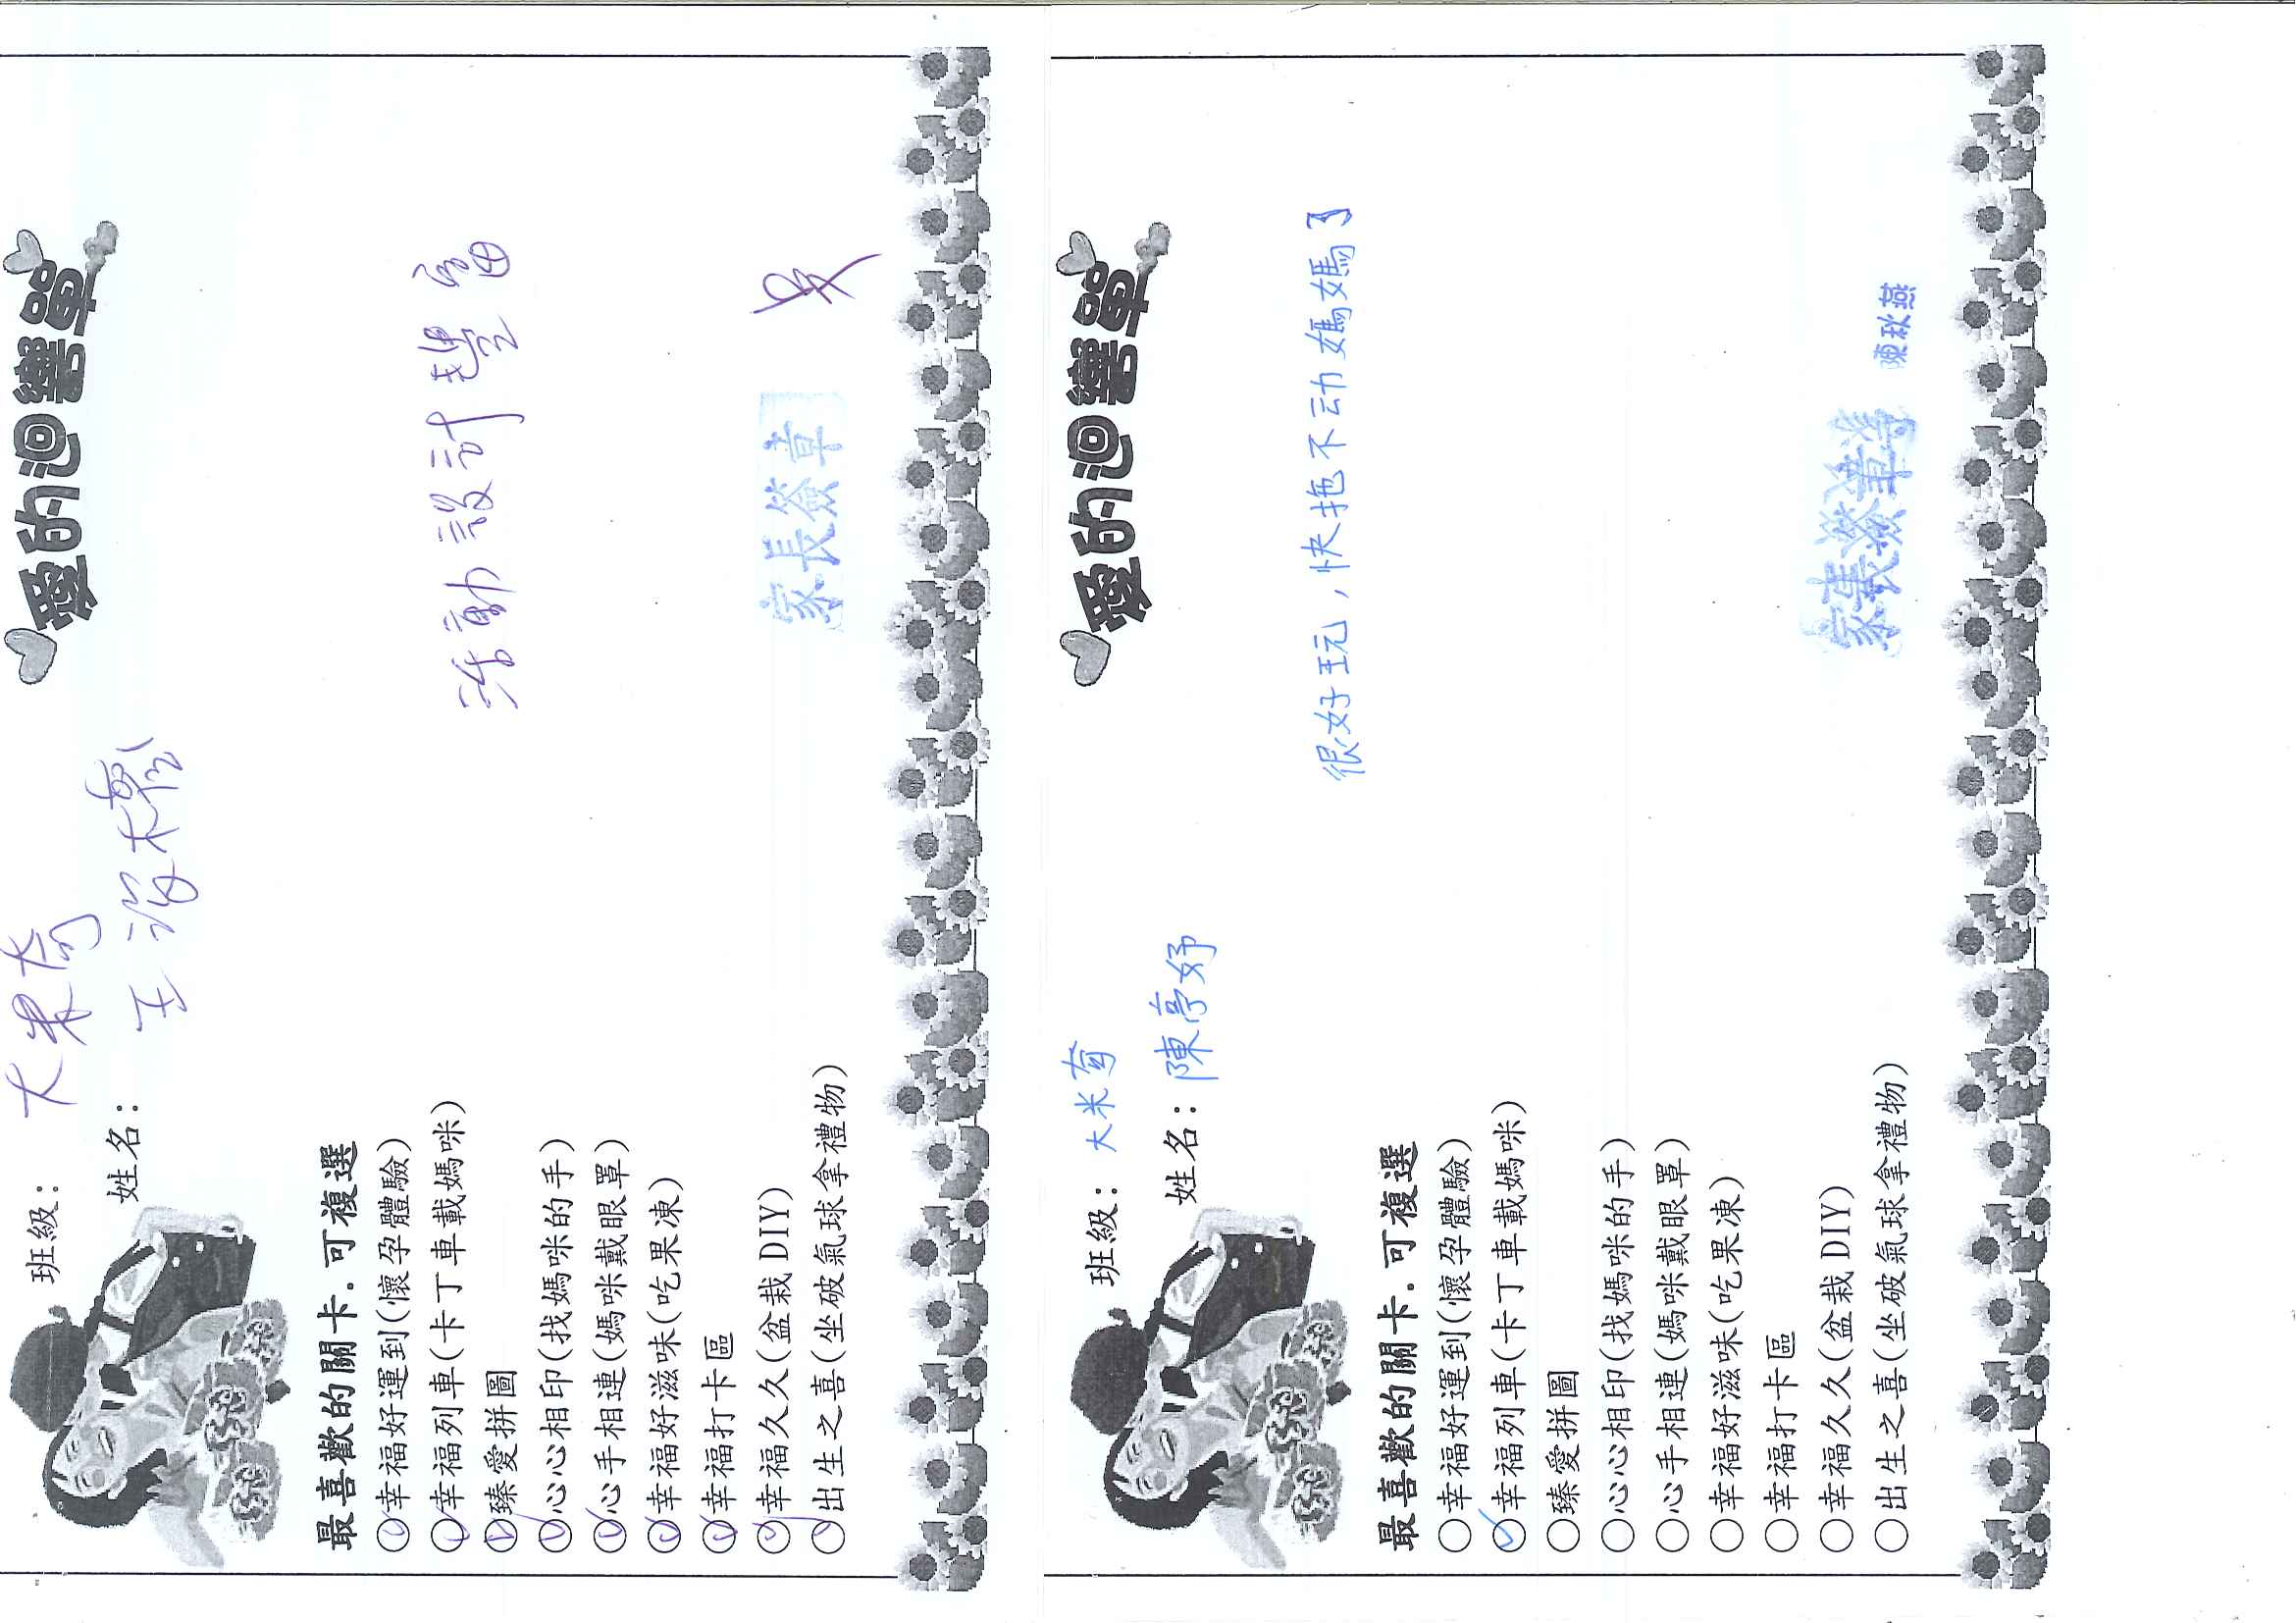 愛的迴響單
班級：大米奇
姓名：王
最喜歡的關卡.可複選
幸福好運到(懷孕體驗)
幸福列車(卡丁車載媽咪)
臻愛拼圖
心心相印(找媽咪的手)
心手相連(媽咪戴眼罩)
幸福好滋味(吃果凍)
幸福打卡區
幸福久久(盆栽DIY)
出生之喜(坐破氣球拿禮物)
活動設計豐富
家長簽章
愛的迴響單
班級：大米奇
姓名：陳亭妤
最喜歡的關卡.可複選
幸福好運到(懷孕體驗)
幸福列車(卡丁車載媽咪)
臻愛拼圖
心心相印(找媽咪的手)
心手相連(媽咪戴眼罩)
幸福好滋味(吃果凍)
幸福打卡區
幸福久久(盆栽DIY)
出生之喜(坐破氣球拿禮物)
很好玩，快拖不动媽媽了
家長簽章
陳秋燕